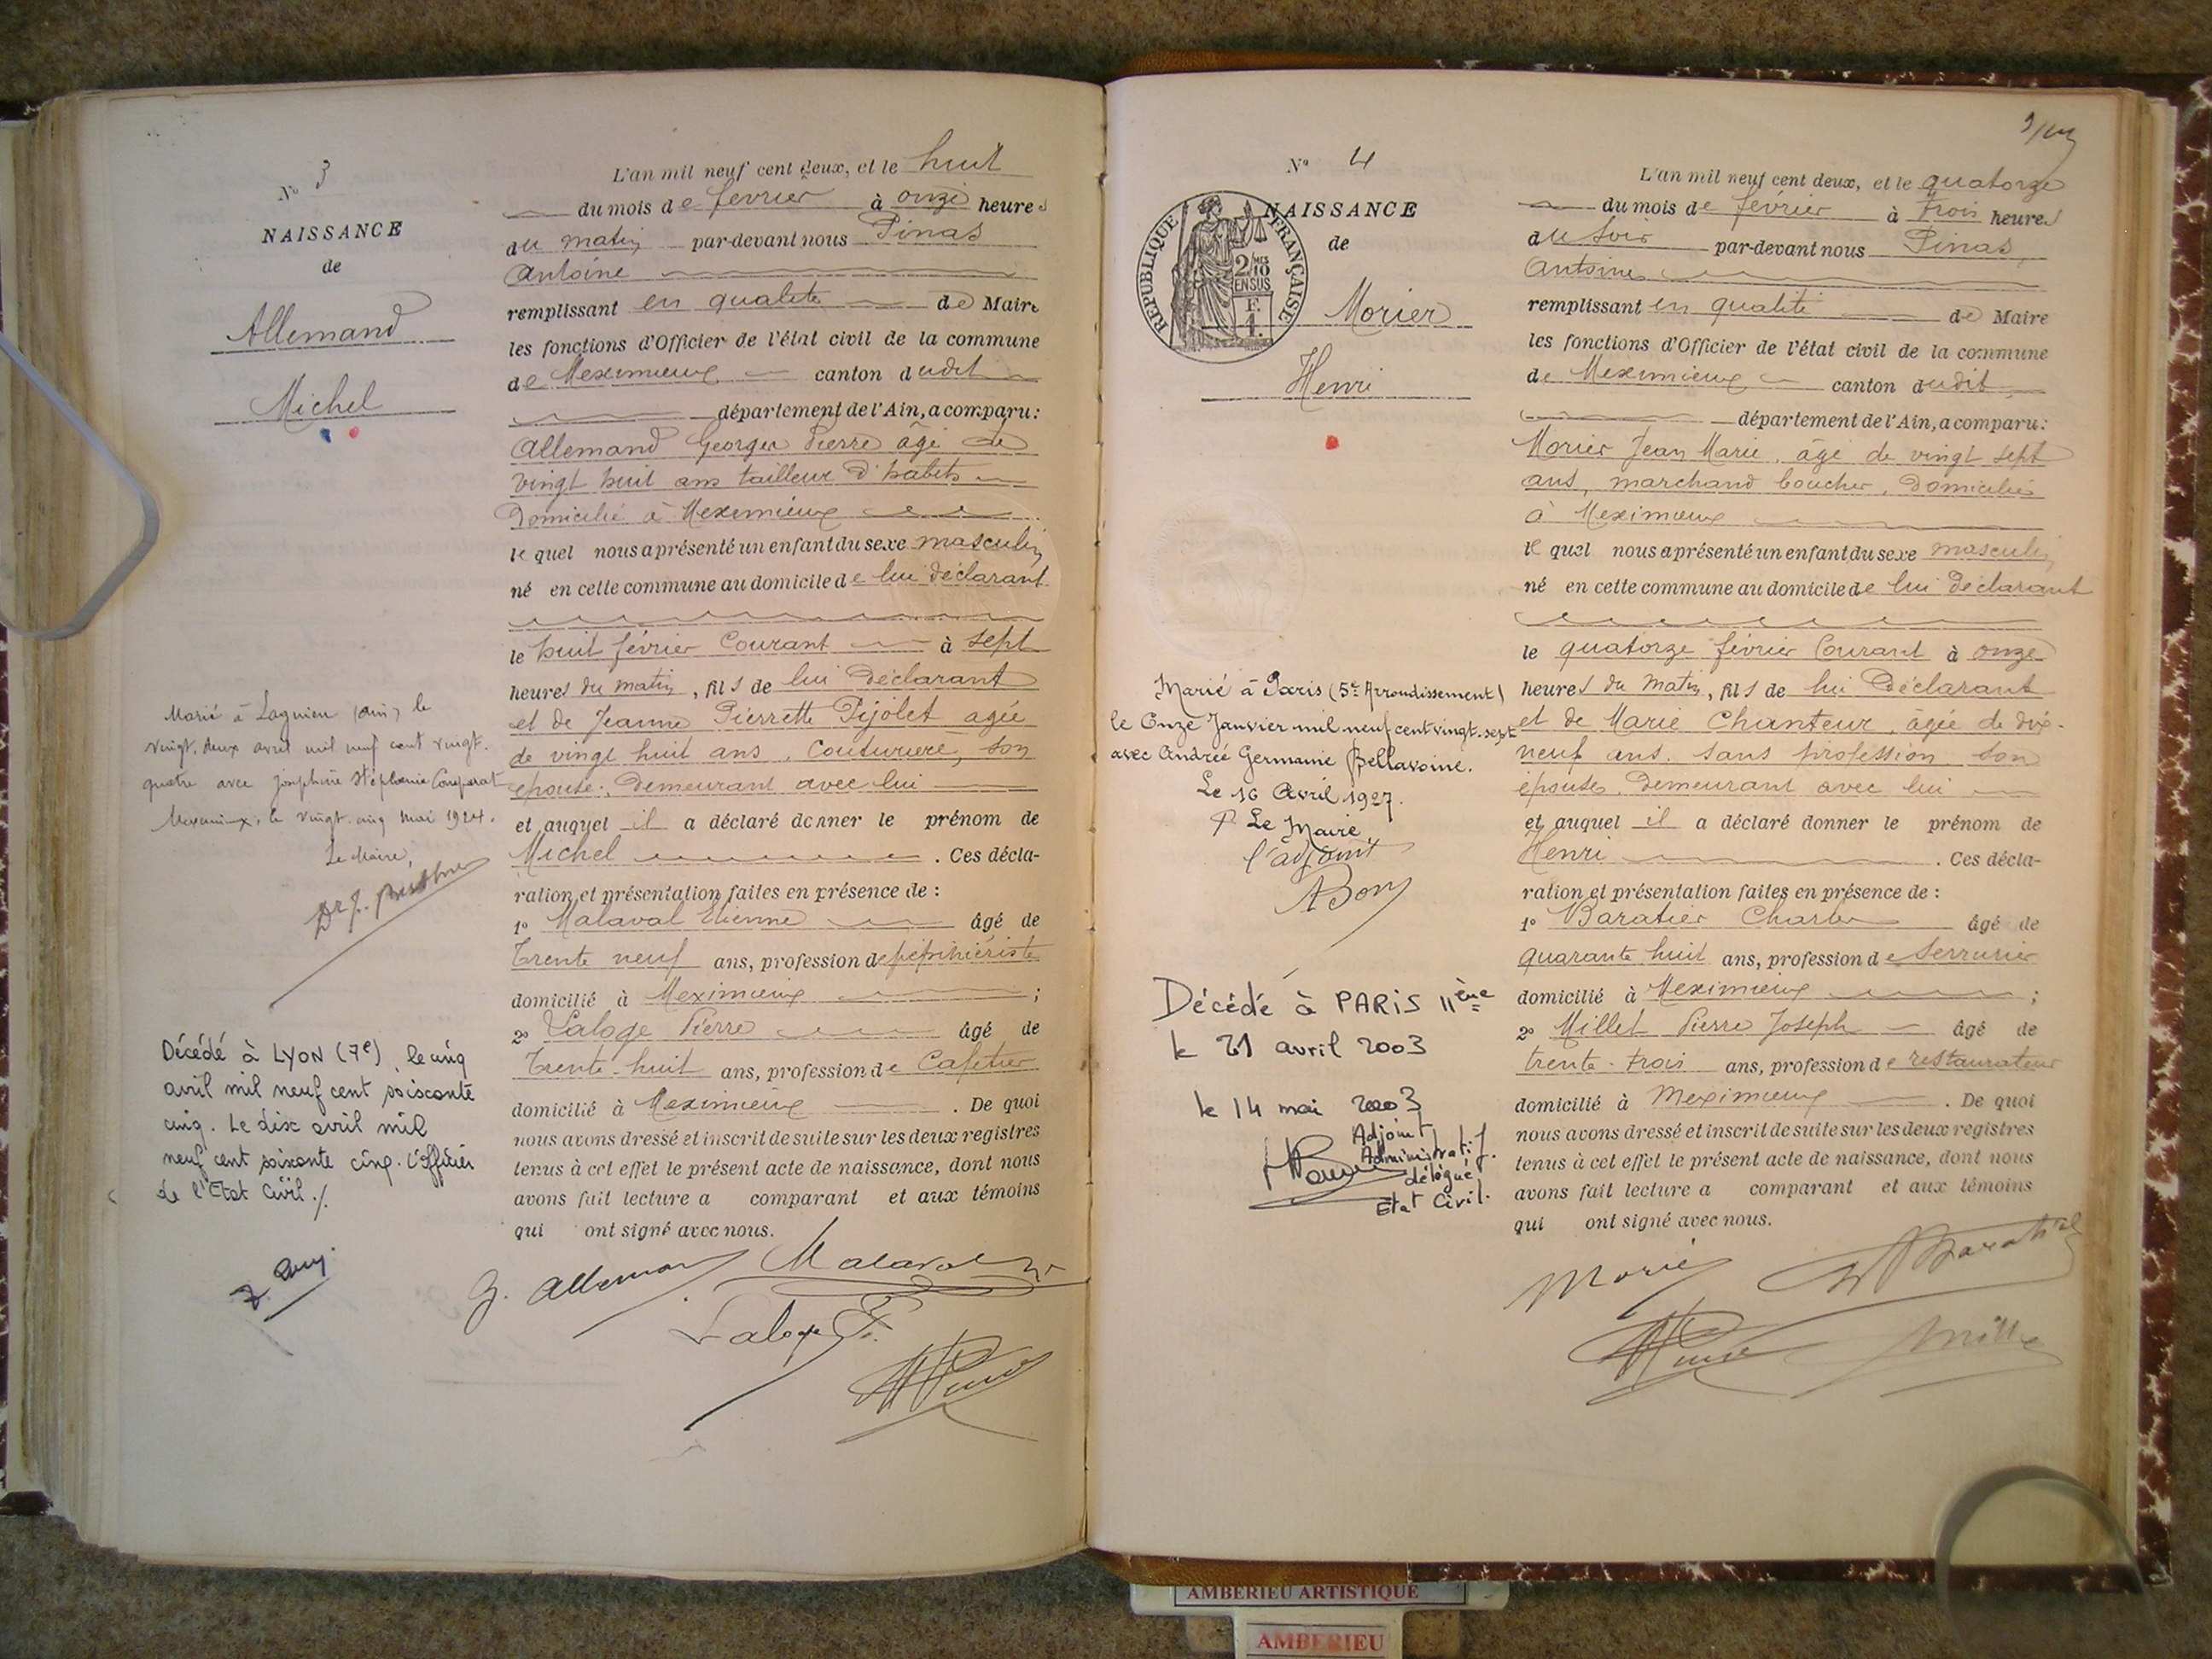 N° 3
NAISSANCE
de
Allemand
Michel
Marié à Lagnieu (Ain) le
vingt-deux avril mil neuf cent vingt-
quatre avec Joséphine Stéphanie Comparat
Meximieux, le vingt cinq mai 1924.
Le Maire,
Décédé à LYON (7e), le cinq
avril mil neuf cent soisconte
cinq. Le dix avril mil
neuf cent soixonte cinq. L'officier
de l'Etat Civil ./.
L'an mil neuf cent deux, et le huit
du mois de février à onze heures
du matin par-devant nous Pinas
Antoine
remplissant en qualité de Maire
les fonctions d'Officier de l'état civil de la commune
de Meximieux canton dudit
département de l'Ain, a comparu:
Allemand Georges Pierre âgé de
vingt huit ans tailleur d'habits
Domicilié à Meximieux
lequel nous a présenté un enfant du sexe masculin
né en cette commune au domicile de lui déclarant
le huit février Courant à sept
heures du matin, fils de lui Déclarant
et de Jeanne Pierrette Pijolet agée
de vingt huit ans, Couturière, son
épouse, Demeurant avec lui
et auquel il a déclaré donner le prénom de
Michel. Ces décla-
ration et présentation faites en présence de :
1° Malaval Etienne âgé de
Trente neuf ans, profession de pépiniériste
domicilié à Meximieux ;
2° Laloge Pierre âgé de
Trente-huit ans, profession de Cafetier
domicilié à Meximieux. De quoi
nous avons dressé et inscrit de suite sur les deux registres
tenus à cet effet le présent acte de naissance, dont nous
avons fait lecture a comparant et aux témoins
qui ont signé avec nous.
G. Allemand Malaval
Laloge P.
N° 4
NAISSANCE
de
RÉPUBLIQUE FRANÇAISE
2/10 MES
EN SUS
Morier
Henri
Marié à Paris (5e Arrondissement)
le Onze Janvier mil neuf cent vingt-sept
avec Andrée Germaine Bellavoine.
Le 16 Avril 1927.
P. Le Maire,
l'adjoint
Décédé à PARIS 11ème
le 21 avril 2003
le 14 mai 2003
Adjoint
Administratif.
délégué
Etat Civil.
L'an mil neuf cent deux, et le quatorze
du mois de février à trois heures
du soir par-devant nous Pinas
Antoine
remplissant en qualité de Maire
les fonctions d'Officier de l'état civil de la commune
de Meximieux canton dudit
département de l'Ain, a comparu:
Morier Jean Marie, âgé de vingt sept
ans, marchand boucher, Domicilié
à Meximieux
lequel nous a présenté un enfant du sexe masculin
né en cette commune au domicile de lui déclarant
le quatorze février Courant à onze
heures du Matin, fils de lui Déclarant
et de Marie Chanteur, âgée de dix-
neuf ans, sans profession son
épouse, Demeurant avec lui
et auquel il a déclaré donner le prénom de
Henri. Ces décla-
ration et présentation faites en présence de :
1° Baratier Charles âgé de
quarante huit ans, profession de Serrurier
domicilié à Meximieux ;
2° Millet Pierre Joseph âgé de
trente-trois ans, profession de restaurateur
domicilié à Meximieux. De quoi
nous avons dressé et inscrit de suite sur les deux registres
tenus à cet effet le présent acte de naissance, dont nous
avons fait lecture a comparant et aux témoins
qui ont signé avec nous.
Morier Baratier
AMBERIEU ARTISTIQUE
AMBERIEU